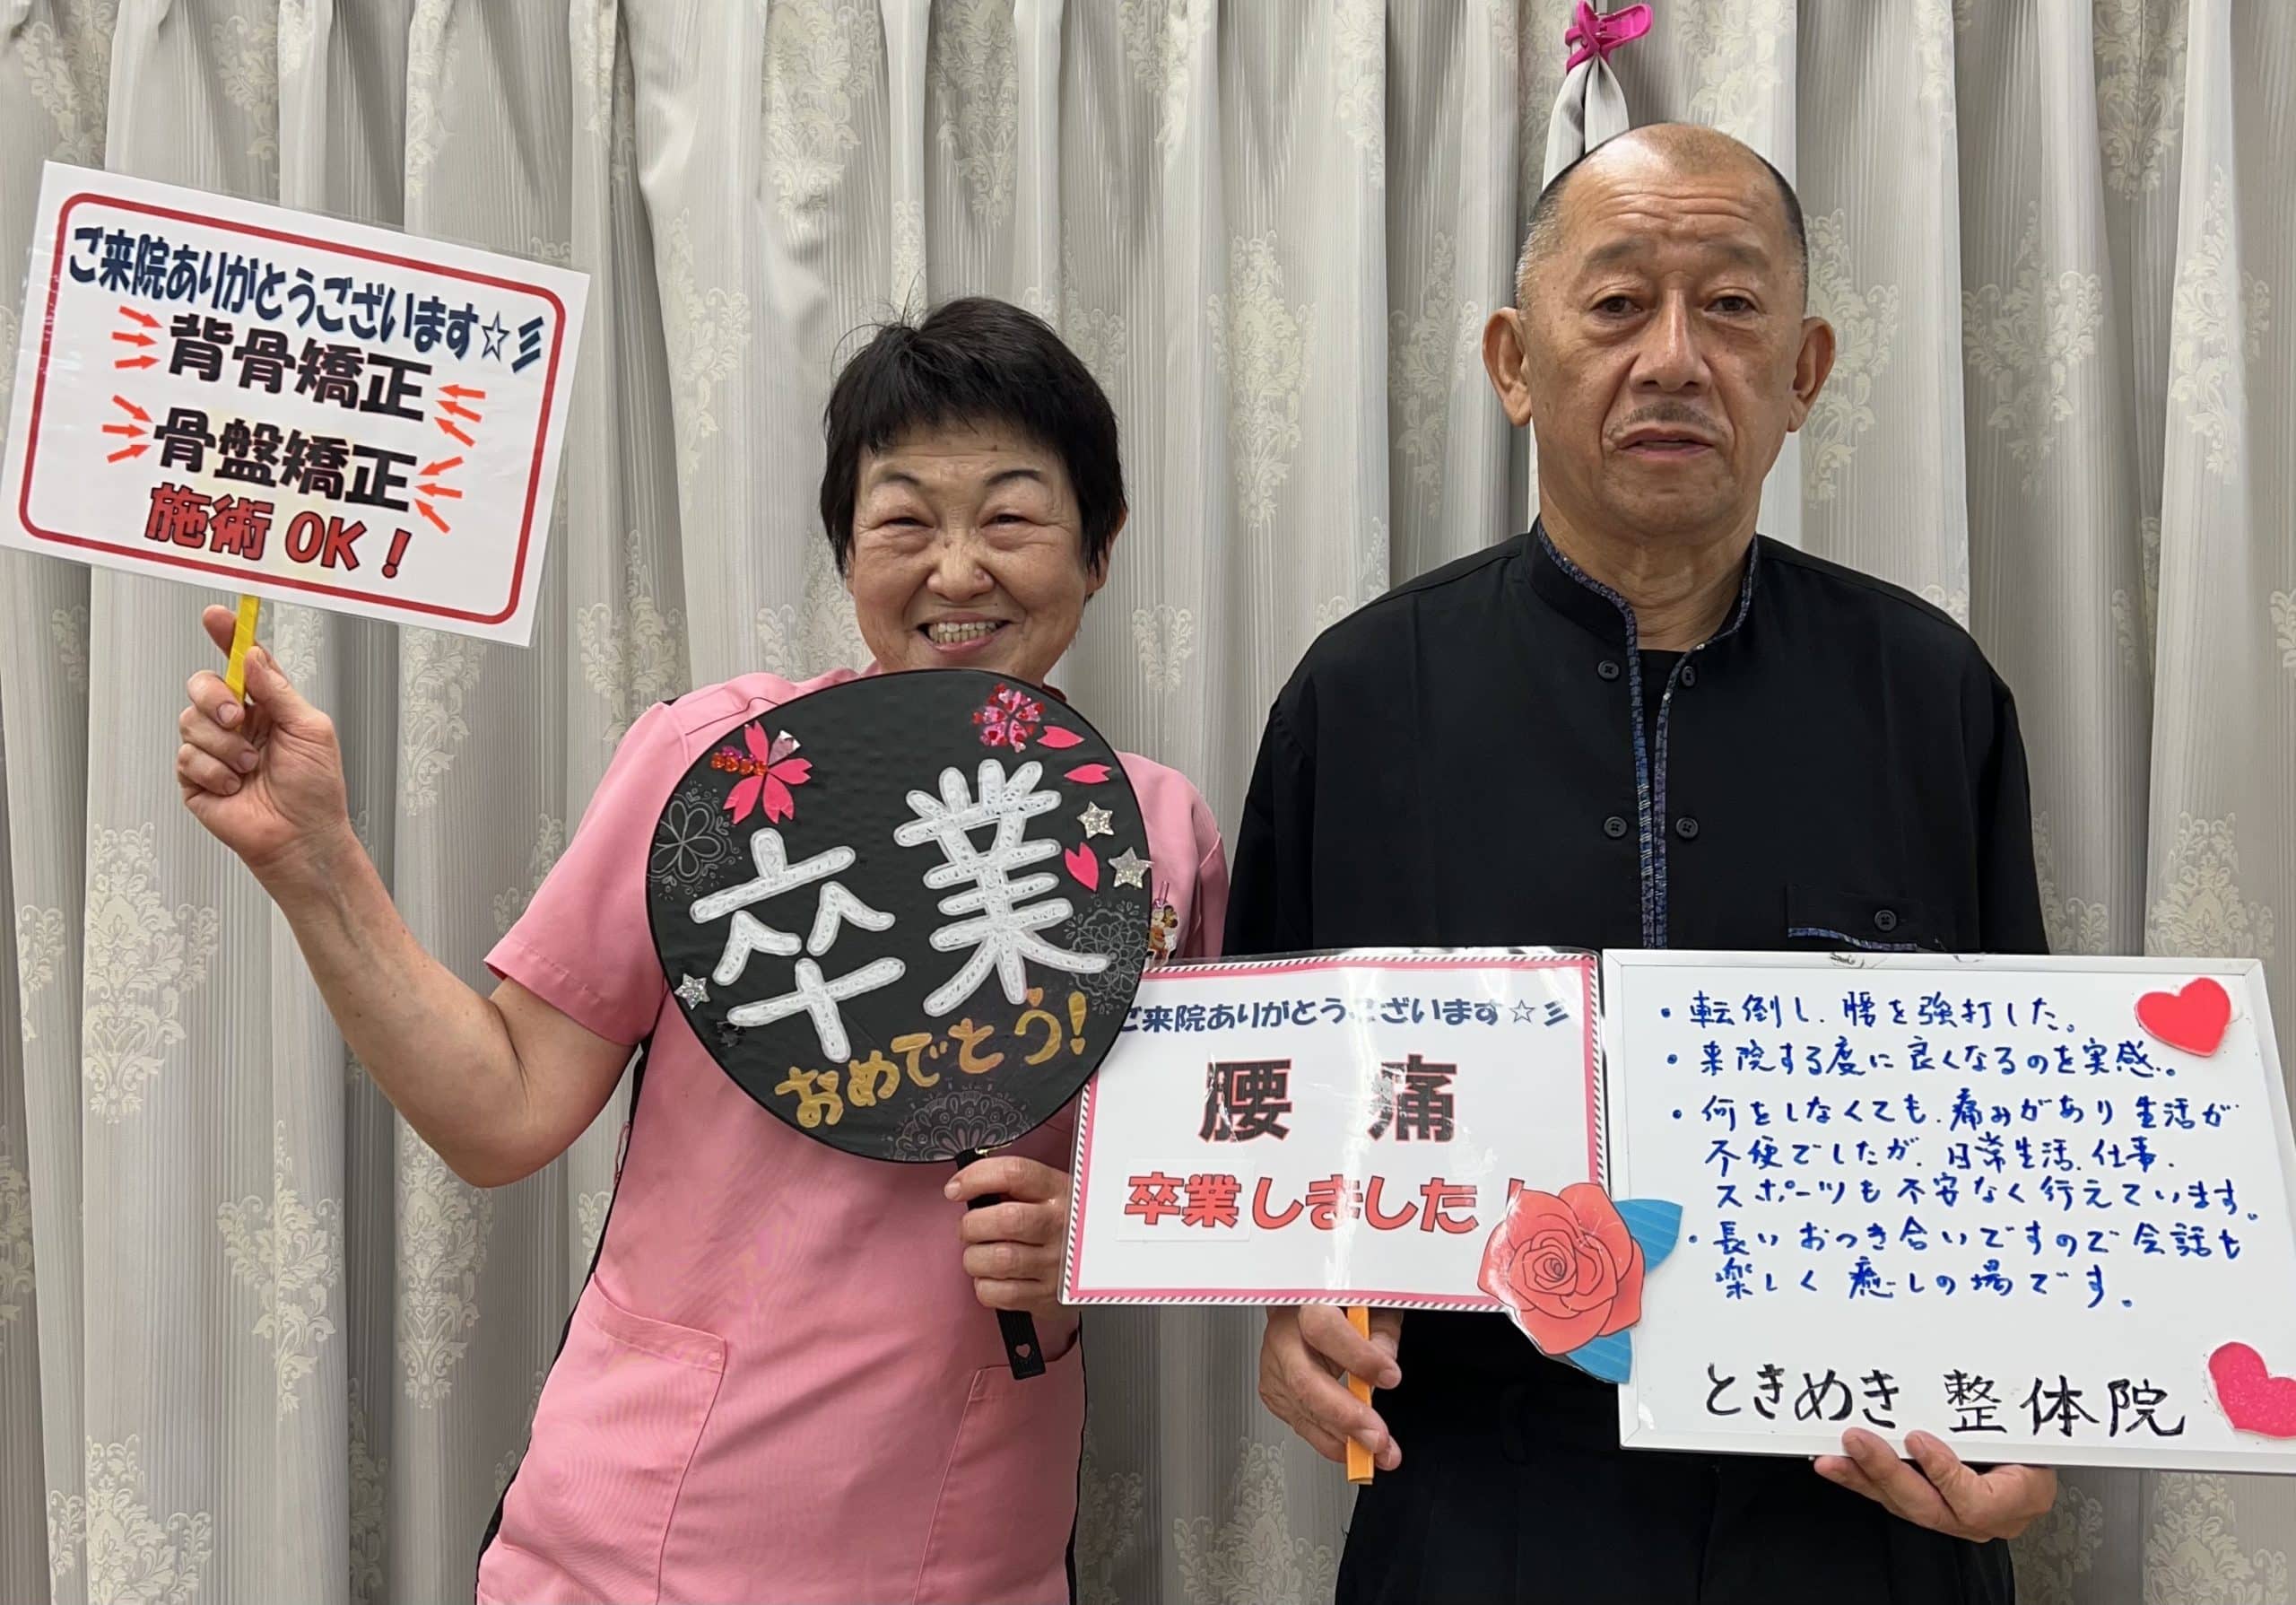 ご来院ありがとうございます☆彡
背骨矯正
骨盤矯正
施術 OK！
卒業
おめでとう！
ご来院ありがとうございます☆彡
腰 痛
卒業しました！
・転倒し、腰を強打した。
・来院する度に良くなるのを実感。
・何をしなくても、痛みがあり生活が
不便でしたが、日常生活、仕事、
スポーツも不安なく行えています。
・長いおつき合いですので会話も
楽しく癒しの場です。
ときめき 整体院